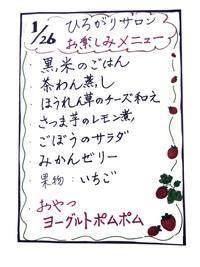 1/26
ひろがりサロン
お楽しみメニュー
・黒米のごはん
・茶わん蒸し
・ほうれん草のチーズ和え
・さつま芋のレモン煮
・ごぼうのサラダ
・みかんゼリー
・果物：いちご
おやつ
ヨーグルトポムポム